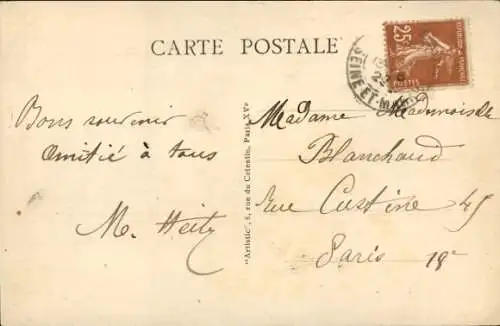 CARTE POSTALE
25
POSTES
SEINE-ET-MARNE
Bons souvenir
Amitié à tous
M. Heitz
"Artistic", 5, rue du Cotentin, Paris XVe
Madame Mademoiselle
Blanchaud
Rue Custine 45
Paris 18e